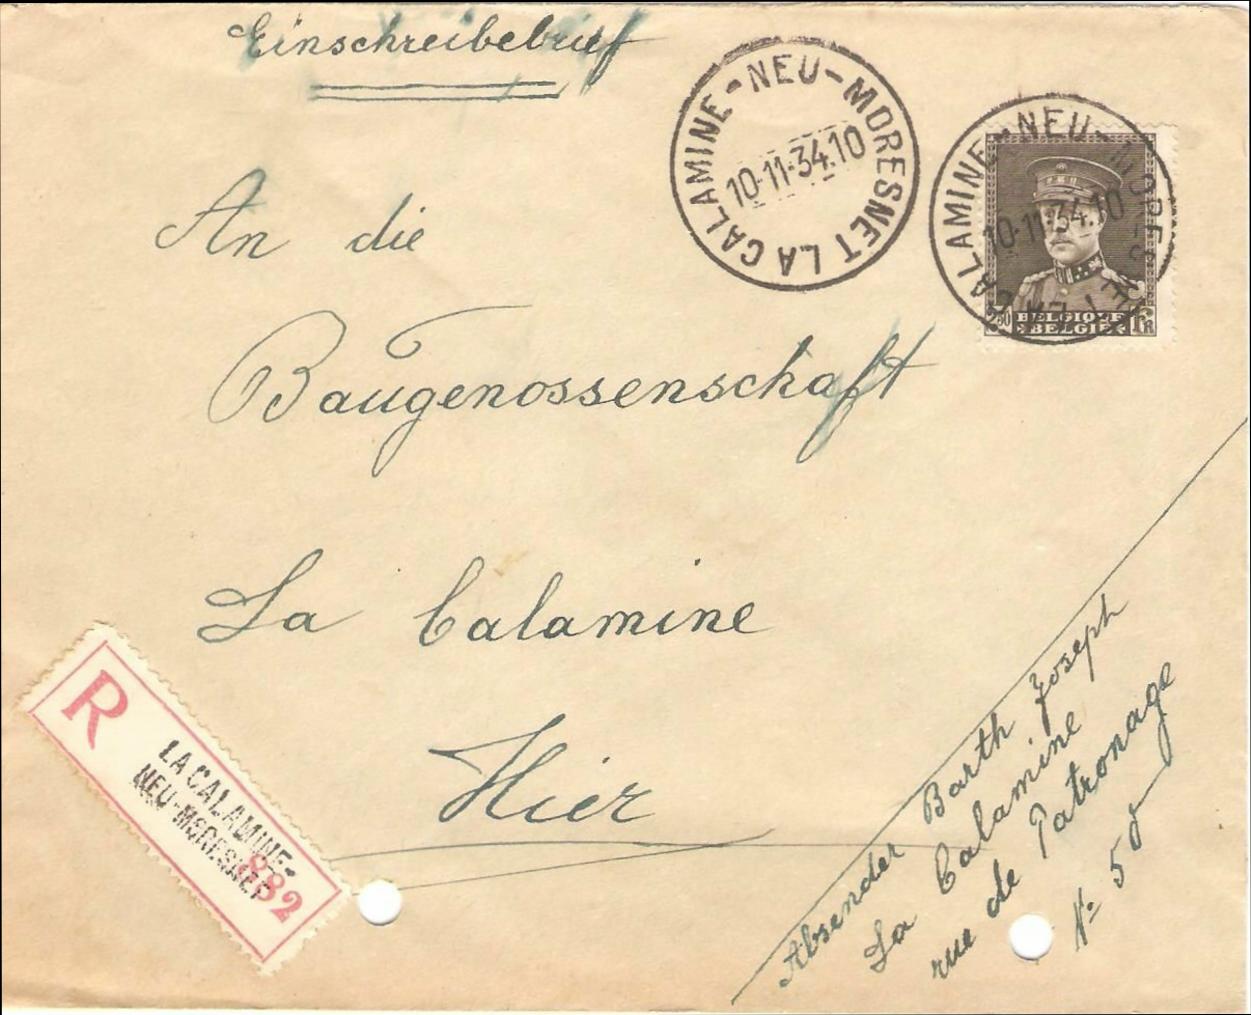 Einschreibebrief
LA CALAMINE-NEU-MORESNET
10-11-34.10
LA CALAMINE-NEU-MORESNET
10-11-34.10
BELGIQUE
BELGIË
FR
An die
Baugenossenschaft
La Calamine
Hier
R
LA CALAMINE-
NEU-MORESNET
882
Absender Barth Joseph
La Calamine
rue de Patronage